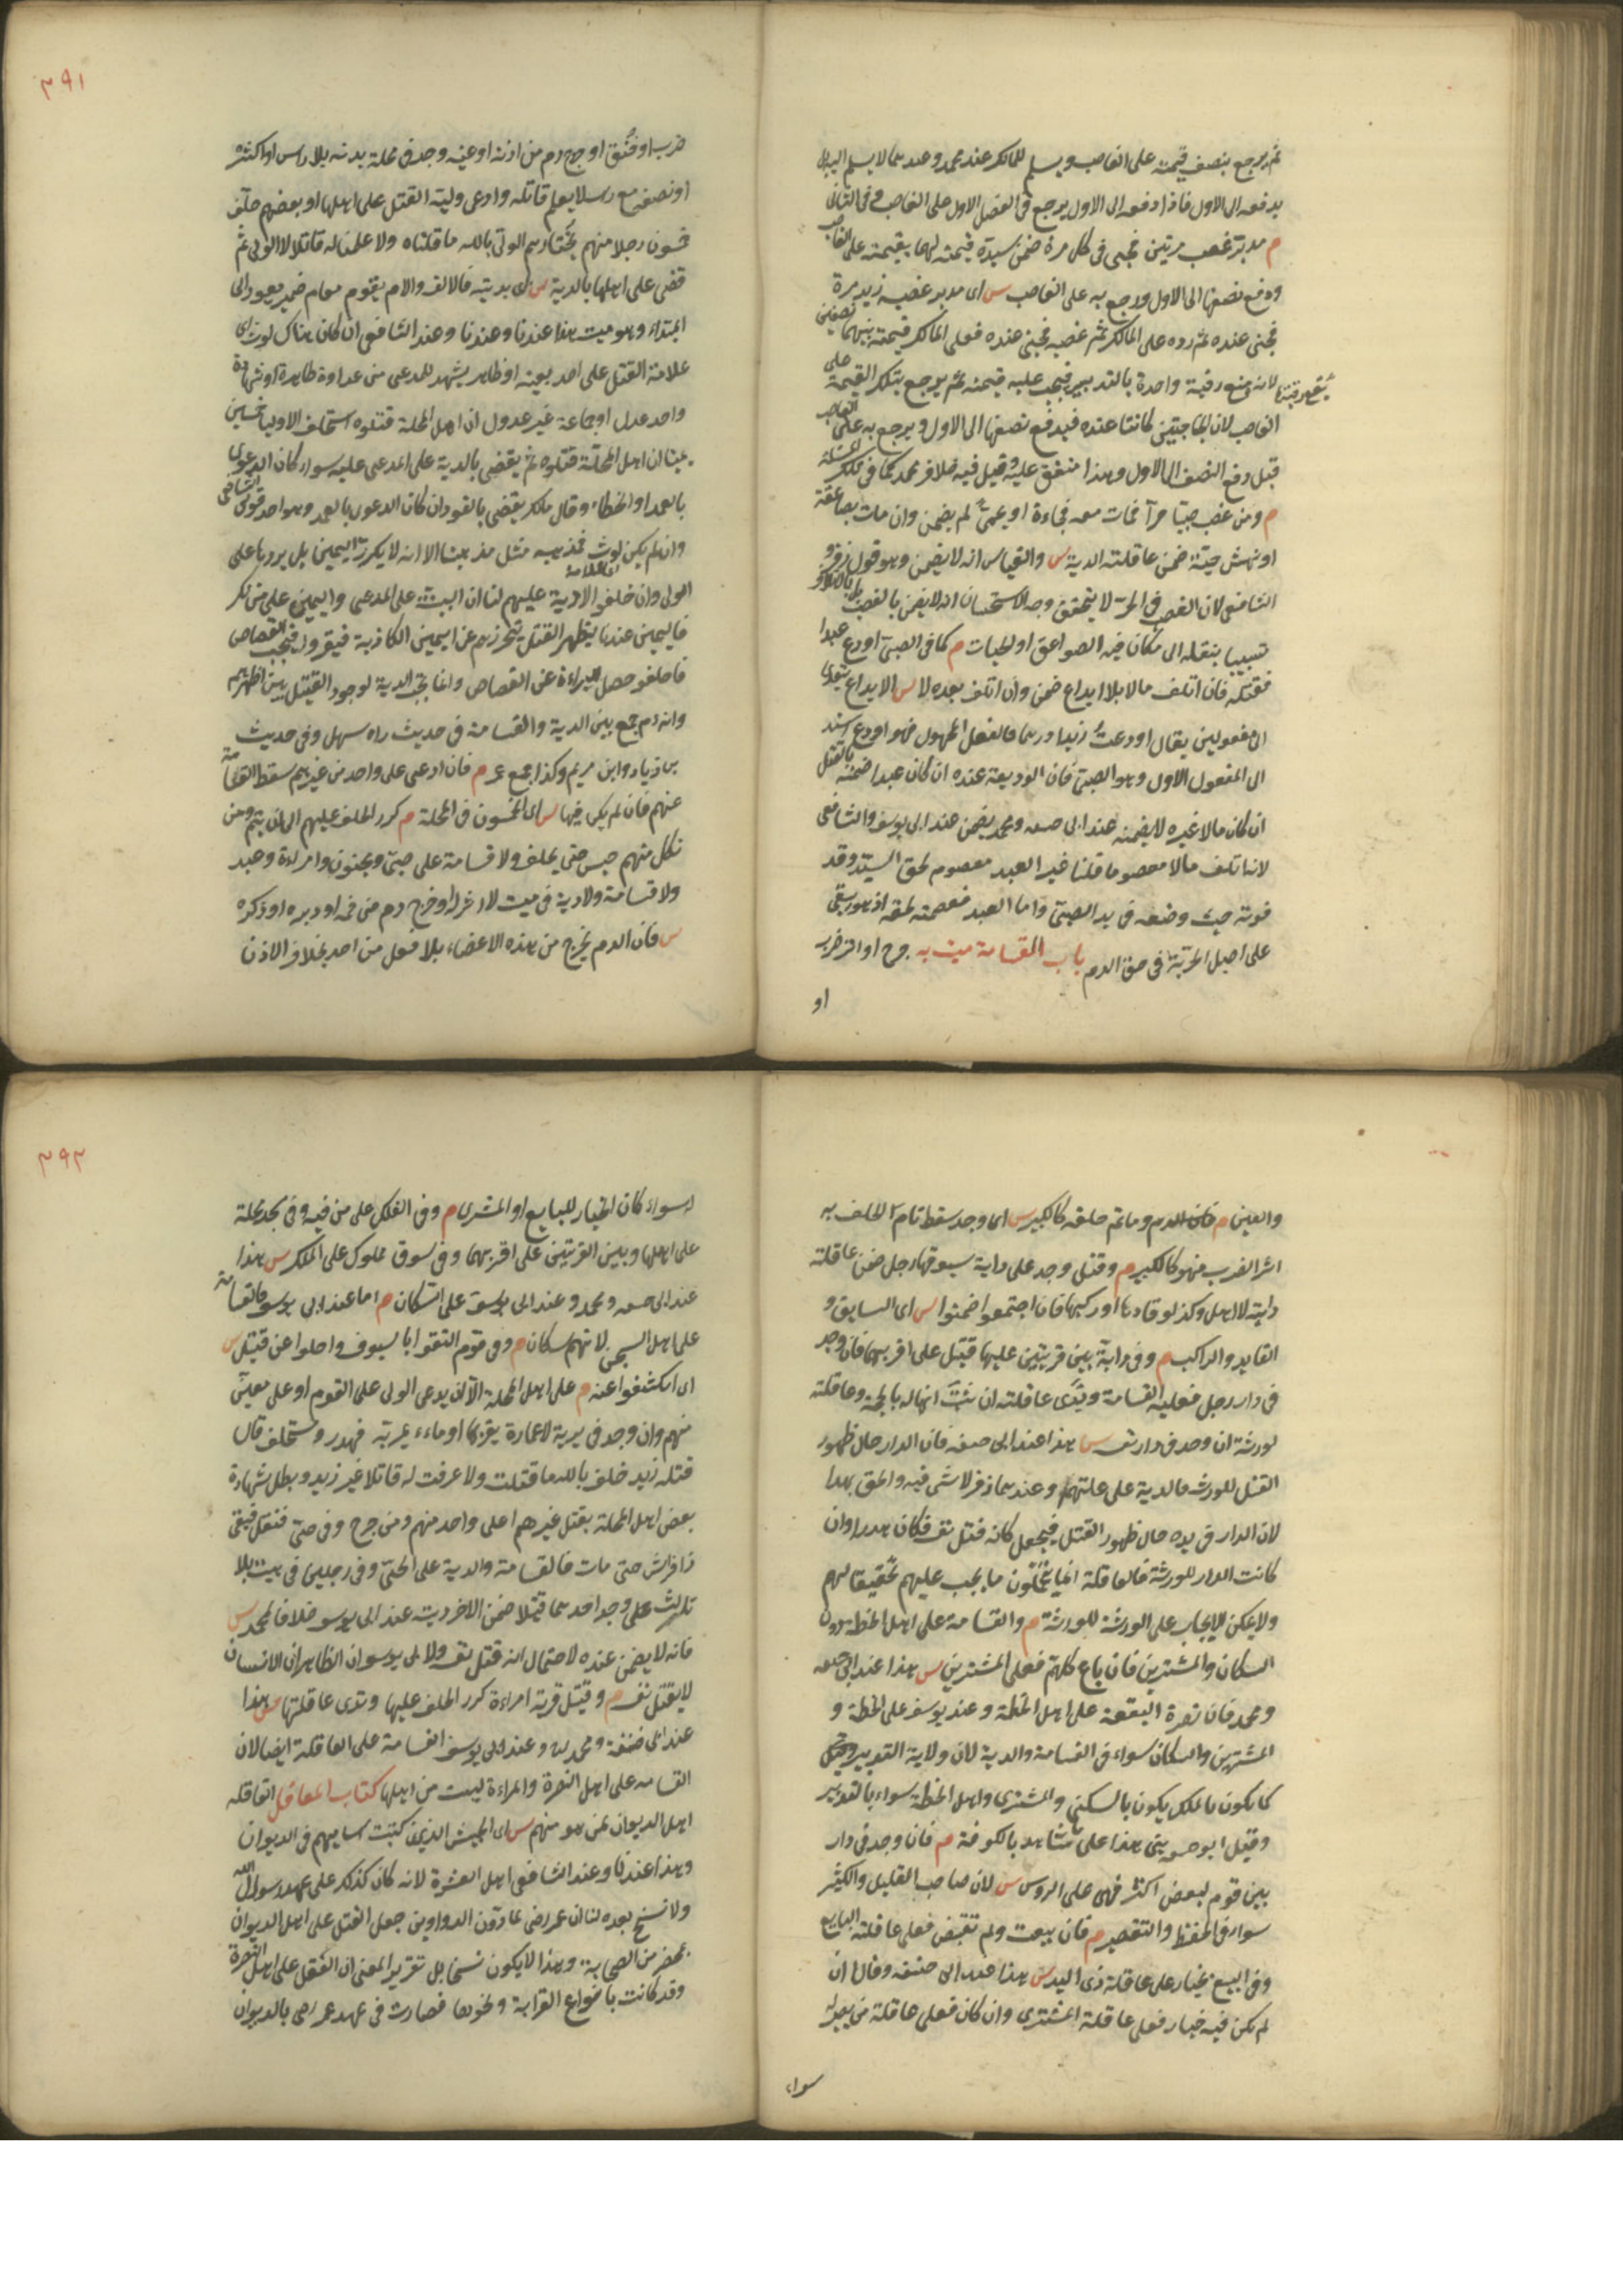 ثم يرجع بنصف قيمته على الغاصب ويسلم للمالك عند محمد وعندهما لا يسلم البدل
يدفعه الى الاول فاذا دفعه الى الاول يرجع فى الفصل الاول على الغاصب وفى الثانى لا
م مدبر غصب مرتين فجنى فى كل مرة ضمن سيده قيمته لهما بقيمته على الغاصب
ودفع نصفها الى الاول ورجع به على الغاصب س اى مدبر غصبه زيد مرة
فجنى عنده ثم رده على المالك ثم غصبه فجنى عنده فعلى المالك قيمته بينهما نصفين
لانه منع رقبة واحدة بالتدبير فيجب عليه قيمته ثم يرجع بتلك القيمة على
الغاصب لان الجنايتين كانتا عنده فيدفع نصفها الى الاول ويرجع به على الغاصب
قيل دفع النصف الى الاول وهذا متفق عليه وقيل فيه خلاف محمد كما فى تلك المسئلة
م ومن غصب صبيا حرا فمات معه فجاءة او بحمى لم يضمن وان مات بصاعقة
او نهش حية ضمن عاقلته الدية س والقياس انه لا يضمن وهو قول زفر و
الشافعى لان الغصب فى الحر لا يتحقق وجه الاستحسان انه لا يضمن بالغصب بل بالاتلاف
تسبيبا بنقله الى مكان فيه الصواعق او الحيات م كما فى الصبى اودع عبدا
فقتله فان اتلف مالا بلا ايداع ضمن وان اتلف بعده لا س الايداع يتعدى
الى مفعولين يقال اودعت زيدا درهما فالفعل المجهول فهو اودع اسند
الى المفعول الاول وهو الصبى فان الوديعة عنده ان كان عبدا ضمنه بالقتل
ان كان مالا غيره لا يضمنه عند ابى حنيفه ومحمد يضمن عند ابى يوسف والشافعى
لانه اتلف مالا معصوما قلنا غير العبد معصوم لحق السيد وقد
فوته حيث وضعه فى يد الصبى واما العبد فعصمته لحقه اذ هو يبقى
على اصل الحرية فى حق الدم باب القسامة ميت به جرح او اثر ضرب
او
٣٩١
ضرب او خنق او خرج دم من اذنه او عينه وجد فى محلة بدنه بلا راس او اكثره
او نصفه مع راسه لا يعلم قاتله وادعى وليه القتل على اهلها او بعضهم حلف
خمسون رجلا منهم يختارهم الولى بالله ما قتلناه ولا علمنا له قاتلا لا الولى ثم
قضى على اهلها بالدية س اى بديته فالالف واللام يقوم مقام ضمير يعود الى
المبتداء وهو ميت هذا عندنا وعندنا وعند الشافعى ان كان هناك لوث اى
علامة القتل على احد بعينه او ظاهر يشهد للمدعى من عداوة ظاهرة او شهادة
واحد عدل او جماعة غير عدول ان اهل المحلة قتلوه استحلف الاولياء خمسين
يمينا ان اهل المحلة قتلوه ثم يقضى بالدية على المدعى عليه سواء كان الدعوى
بالعمد او الخطاء وقال مالك يقضى بالقود ان كان الدعوى بالعمد وهو احد قولى الشافعى
وان لم يكن لوث فمذهبه مثل مذهبنا الا انه لا يكرر اليمين بل يردها على
الولى وان حلفوا لا دية عليهم لنا ان البينة على المدعى واليمين على من انكر
فاليمين عندنا ليظهر القتل بتحرزهم عن اليمين الكاذبة فيقروا فيجب القصاص
فاذا حلفوا حصل البراءة عن القصاص وانما تجب الدية لوجود القتيل بين اظهرهم
وانه دم جمع بين الدية والقسامة فى حديث راه سهل وفى حديث
بن زياد وابن مريم وكذا جمع عمر م فان ادعى على واحد من غيرهم سقط القسامة
عنهم فان لم يكن فيها س اى الخمسون فى المحلة م كرر الحلف عليهم الى ان يتم ومن
نكل منهم حبس حتى يحلف ولا قسامة على صبى ومجنون وامراءة وعبد
ولا قسامة ولا دية فى ميت لا اثر له او خرج دم من فمه او دبره او ذكره
س فان الدم يخرج من هذه الاعضاء بلا فعل من احد بخلاف الاذن
والعين م فان الدم وما تم خلقه كالكبير س اى وجد سقط تام الخلف به
اثر الضرب فهو كالكبير م وقتيل وجد على دابة يسوقها رجل ضمن عاقلته
ديته لا اهل وكذا لو قادها او ركبها فان اجتمعوا ضمنوا س اى السايق و
القايد والراكب م وفى دابة بين قريتين عليها قتيل على اقربهما فان وجد
فى دار رجل فعليه القسامة ويدى عاقلته ان ثبت انها له بالحجة وعاقلته
لورثة ان وجد فى دار نفسه س هذا عند ابى حنيفه فان الدار حال ظهور
القتل للورثة فالدية على عاقلتهم وعندهما وزفر لا شى فيه والحق هذا
لان الدار فى يده حال ظهور القتل فيجعل كانه قتل نفسه فكان هدرا وان
كانت الدار للورثة فالعاقلة انما يتحملون ما يجب عليهم تخفيفا لهم
ولا يمكن الايجاب على الورثة للورثة م والقسامة على اهل الخطة دون
السكان والمشترين فان باع كلهم فعلى المشترين س هذا عند ابى حنيفه
ومحمد فان نصرة البقعة على اهل الخطة وعند يوسف على الخطة و
المشترين والسكان سواء فى القسامة والدية لان ولاية التدبير
كما يكون بالملك يكون بالسكنى والمشترى واهل الخطة سواء بالتدبير
وقيل ابو حنيفه بنى هذا على ما شاهد بالكوفة م فان وجد فى دار
بين قوم لبعض اكثر فهى على الروس س لان صاحب القليل والكثير
سواء فى الحفظ والتقصير م فان بيعت ولم تقبض فعلى عاقلة البايع
وفى البيع بخيار على عاقلة ذى اليد س هذا عند ابى حنيفه وقالا ان
لم يكن فيه خيار فعلى عاقلة المشترى وان كان فعلى عاقلة من يصير له
سواء
٣٩٢
سواء كان الخيار للبايع او المشترى م وفى الفلك على من فيه وفى مسجد محلة
على اهلها وبين القريتين على اقربهما وفى سوق مملوك على المالك س هذا
عند ابى حنيفه ومحمد وعند ابى يوسف على السكان م اما عند ابى يوسف فالقسامة
على اهل السجن لانهم سكان م وفى قوم التقوا بالسيوف واجلوا عن قتيل س
اى انكشفوا عنه م على اهل المحلة الا ان يدعى الولى على القوم او على معين
منهم وان وجد فى برية لا عمارة بقربها او ماء يمر به فهدر ومستحلف قال
قتله زيد حلف بالله ما قتلت ولا عرفت له قاتلا غير زيد وبطل شهادة
بعض اهل المحلة بقتل غيرهم او على واحد منهم ومن جرح وفى حى فنقل فبقى
ذا فراش حتى مات فالقسامة والدية على الحى وفى رجلين فى بيت بلا
ثالث وجد احدهما قتيلا ضمن الاخر ديته عند ابى يوسف خلافا لمحمد س
فانه لا يضمن عنده لاحتمال انه قتل نفسه ولابى يوسف ان الظاهر ان الانسان
لا يقتل نفسه م وقتيل قرية امراءة كرر الحلف عليها وتدى عاقلتها س هذا
عند ابى حنيفة ومحمد وعند ابى يوسف القسامة على العاقلة ايضا لان
القسامه على اهل النصرة والمراءة ليست من اهلها كتاب المعاقل العاقله
اهل الديوان لمن هو منهم س اى الجيش الذين كتبت اساميهم فى الديوان
وهذا عندنا وعند الشافعى اهل العشرة لانه كان كذلك على عهد رسول الله
ولا نسخ بعده لنا ان عمر رضى لما دون الدواوين جعل العقل على اهل الديوان
بمحضر من الصحابة وهذا لا يكون نسخا بل تقرير المعنى ان العقل على اهل النصرة
وقد كانت بانواع القرابة ونحوها فصارت فى عهد عمر رضى بالديوان